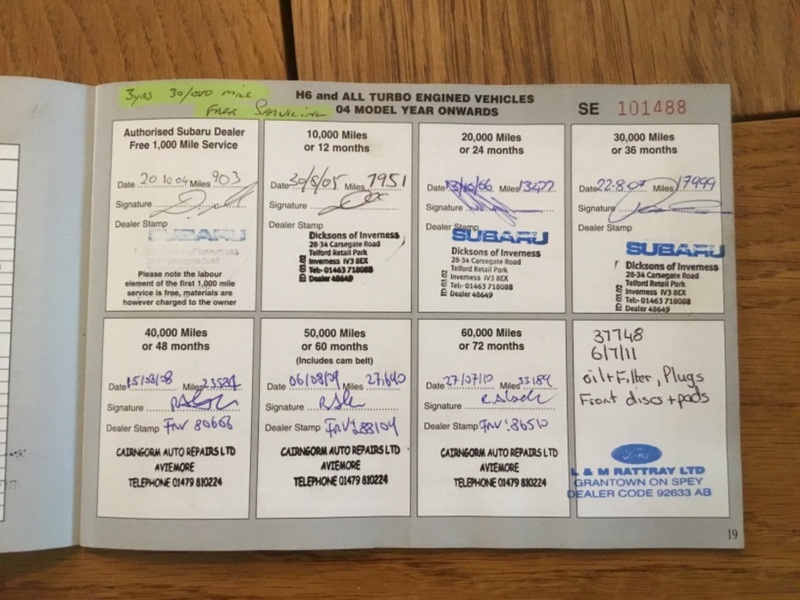 3yrs 30/000 mile
Free Servicing
H6 and ALL TURBO ENGINED VEHICLES
04 MODEL YEAR ONWARDS
SE 101488
Authorised Subaru Dealer
Free 1,000 Mile Service
Date 20 10 04 Miles 903
Signature
Dealer Stamp
SUBARU
Please note the labour
element of the first 1,000 mile
service is free, materials are
however charged to the owner
10,000 Miles
or 12 months
Date 30/8/05 Miles 7951
Signature
Dealer Stamp
Dicksons of Inverness
28-34 Carsegate Road
Telford Retail Park
Inverness IV3 8EX
Tel:- 01463 718088
Dealer 48649
20,000 Miles
or 24 months
Date 13/10/06 Miles 13477
Signature
Dealer Stamp
SUBARU
Dicksons of Inverness
28-34 Carsegate Road
Telford Retail Park
Inverness IV3 8EX
Tel:- 01463 718088
Dealer 48649
30,000 Miles
or 36 months
Date 22.8.07 Miles 17999
Signature
Dealer Stamp
SUBARU
Dicksons of Inverness
28-34 Carsegate Road
Telford Retail Park
Inverness IV3 8EX
Tel:- 01463 718088
Dealer 48649
40,000 Miles
or 48 months
Date 15/08/08 Miles 23584
Signature
Dealer Stamp INV 80668
CAIRNGORM AUTO REPAIRS LTD
AVIEMORE
TELEPHONE 01479 810224
50,000 Miles
or 60 months
(Includes cam belt)
Date 06/08/09 Miles 27,640
Signature
Dealer Stamp INV: 83104
CAIRNGORM AUTO REPAIRS LTD
AVIEMORE
TELEPHONE 01479 810224
60,000 Miles
or 72 months
Date 27/07/10 Miles 33189
Signature
Dealer Stamp INV: 86510
CAIRNGORM AUTO REPAIRS LTD
AVIEMORE
TELEPHONE 01479 810224
37748
6/7/11
oil+Filter, Plugs
Front discs + pads
Ford
L & M RATTRAY LTD
GRANTOWN ON SPEY
DEALER CODE 92633 AB
19